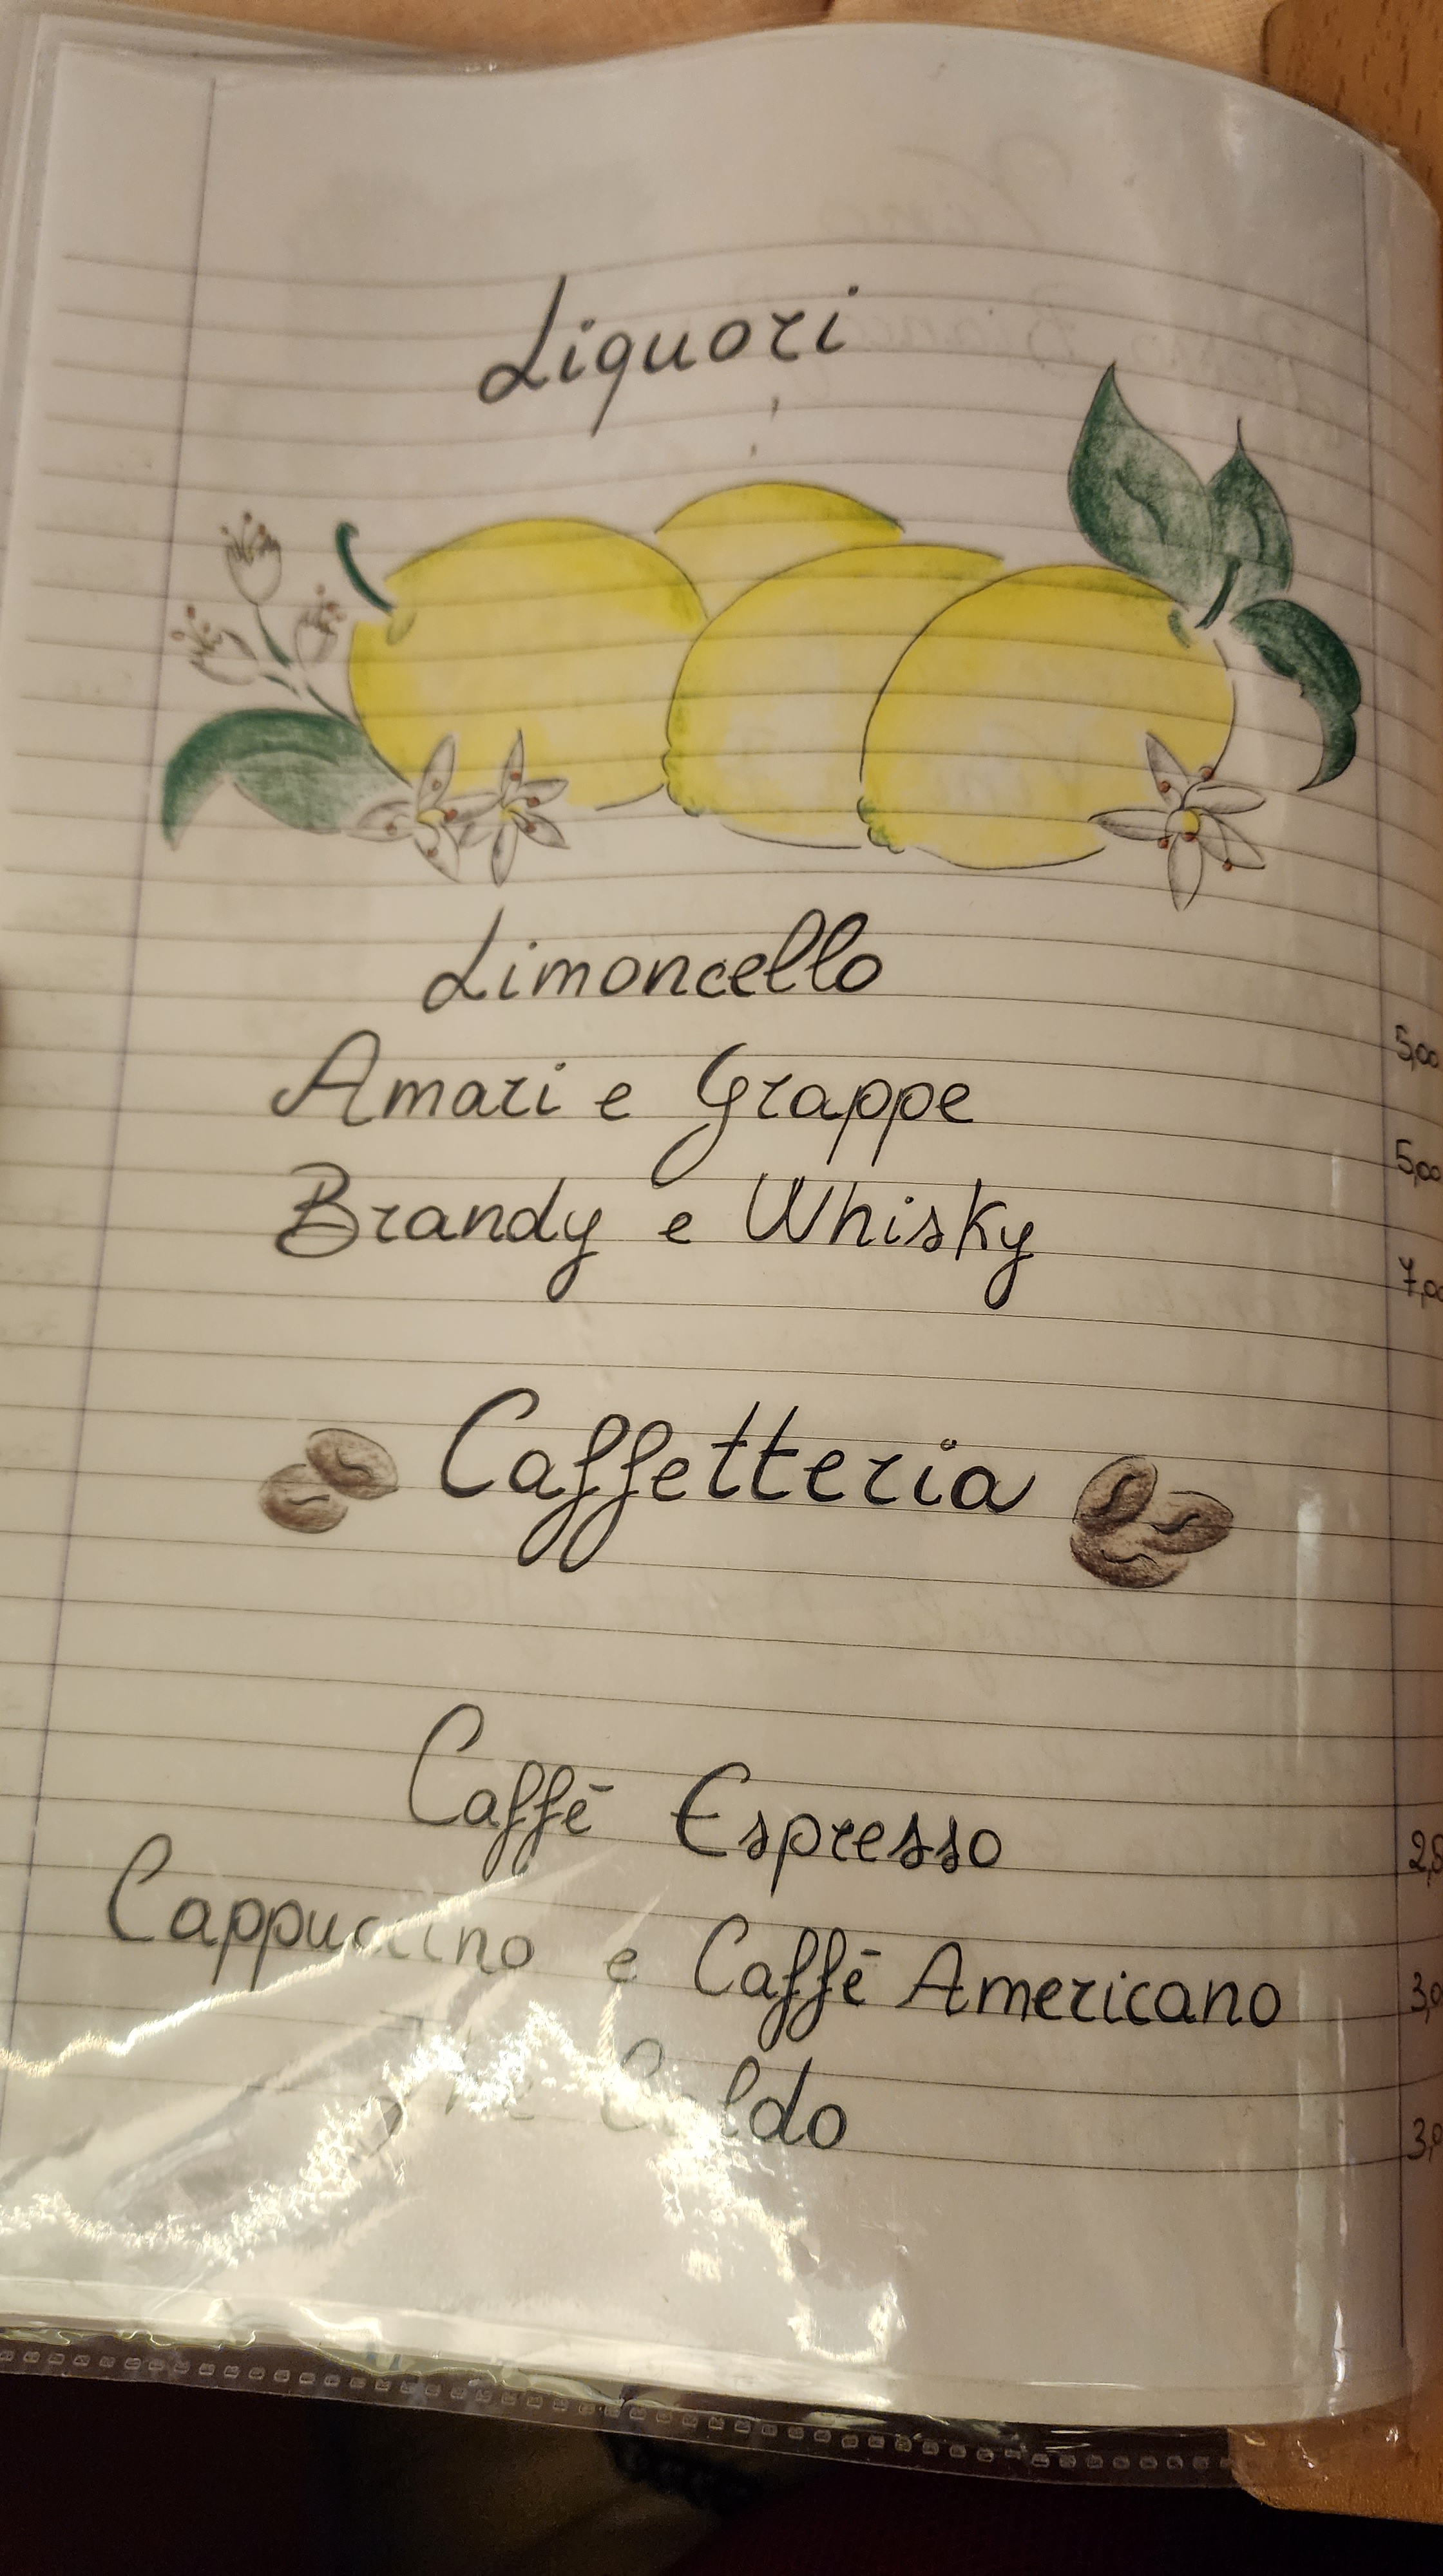 Liquori
Limoncello 5,00
Amari e Grappe 5,00
Brandy e Whisky 7,00
Caffetteria
Caffē Espresso
Cappuccino e Caffē Americano 3,0
The Caldo 3,0